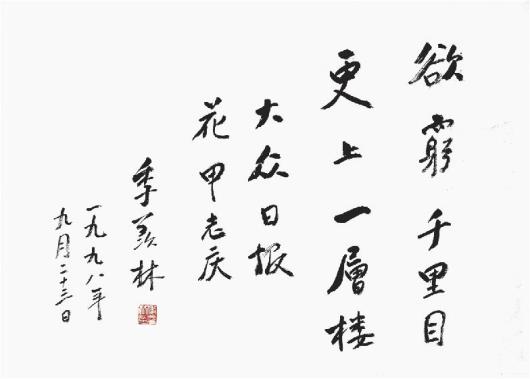 欲窮千里目
更上一層楼
大众日报
花甲志庆
季羡林
一九九八年
九月二十三日